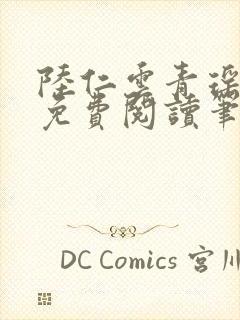 陸仁雲青瑶
免費閱讀筆
DC Comics 宮川